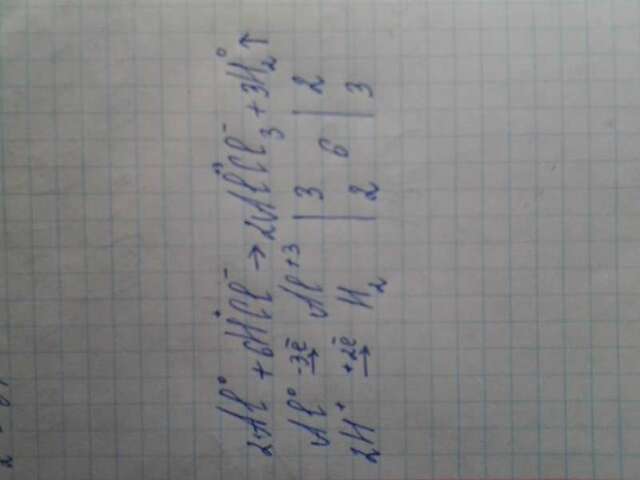 2Al⁰ + 6H⁺Cl⁻ → 2Al⁺³Cl₃⁻ + 3H₂⁰↑
Al⁰ -3ē→ Al⁺³ | 3 | 2
6
2H⁺ +2ē→ H₂ | 2 | 3